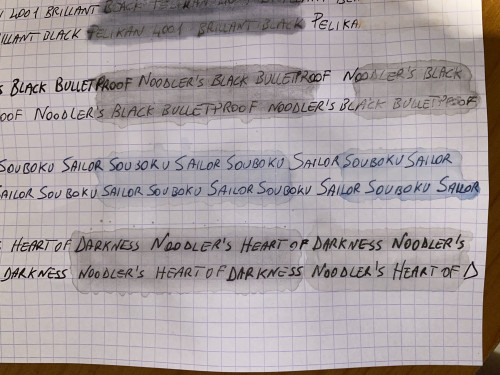 N 4001 BRILLANT BLACK PELIKAN 4001 BRILLANT
ILLANT BLACK PELIKAN 4001 BRILLANT BLACK PELIKA
S BLACK BULLETPROOF NOODLER'S BLACK BULLETPROOF NOODLER'S BLACK
OOF NOODLER'S BLACK BULLETPROOF NOODLER'S BLACK BULLETPROOF
SOUBOKU SAILOR SOUBOKU SAILOR SOUBOKU SAILOR SOUBOKU SAILOR
SAILOR SOUBOKU SAILOR SOUBOKU SAILOR SOUBOKU SAILOR SOUBOKU SAILOR
HEART OF DARKNESS NOODLER'S HEART OF DARKNESS NOODLER'S
DARKNESS NOODLER'S HEART OF DARKNESS NOODLER'S HEART OF D